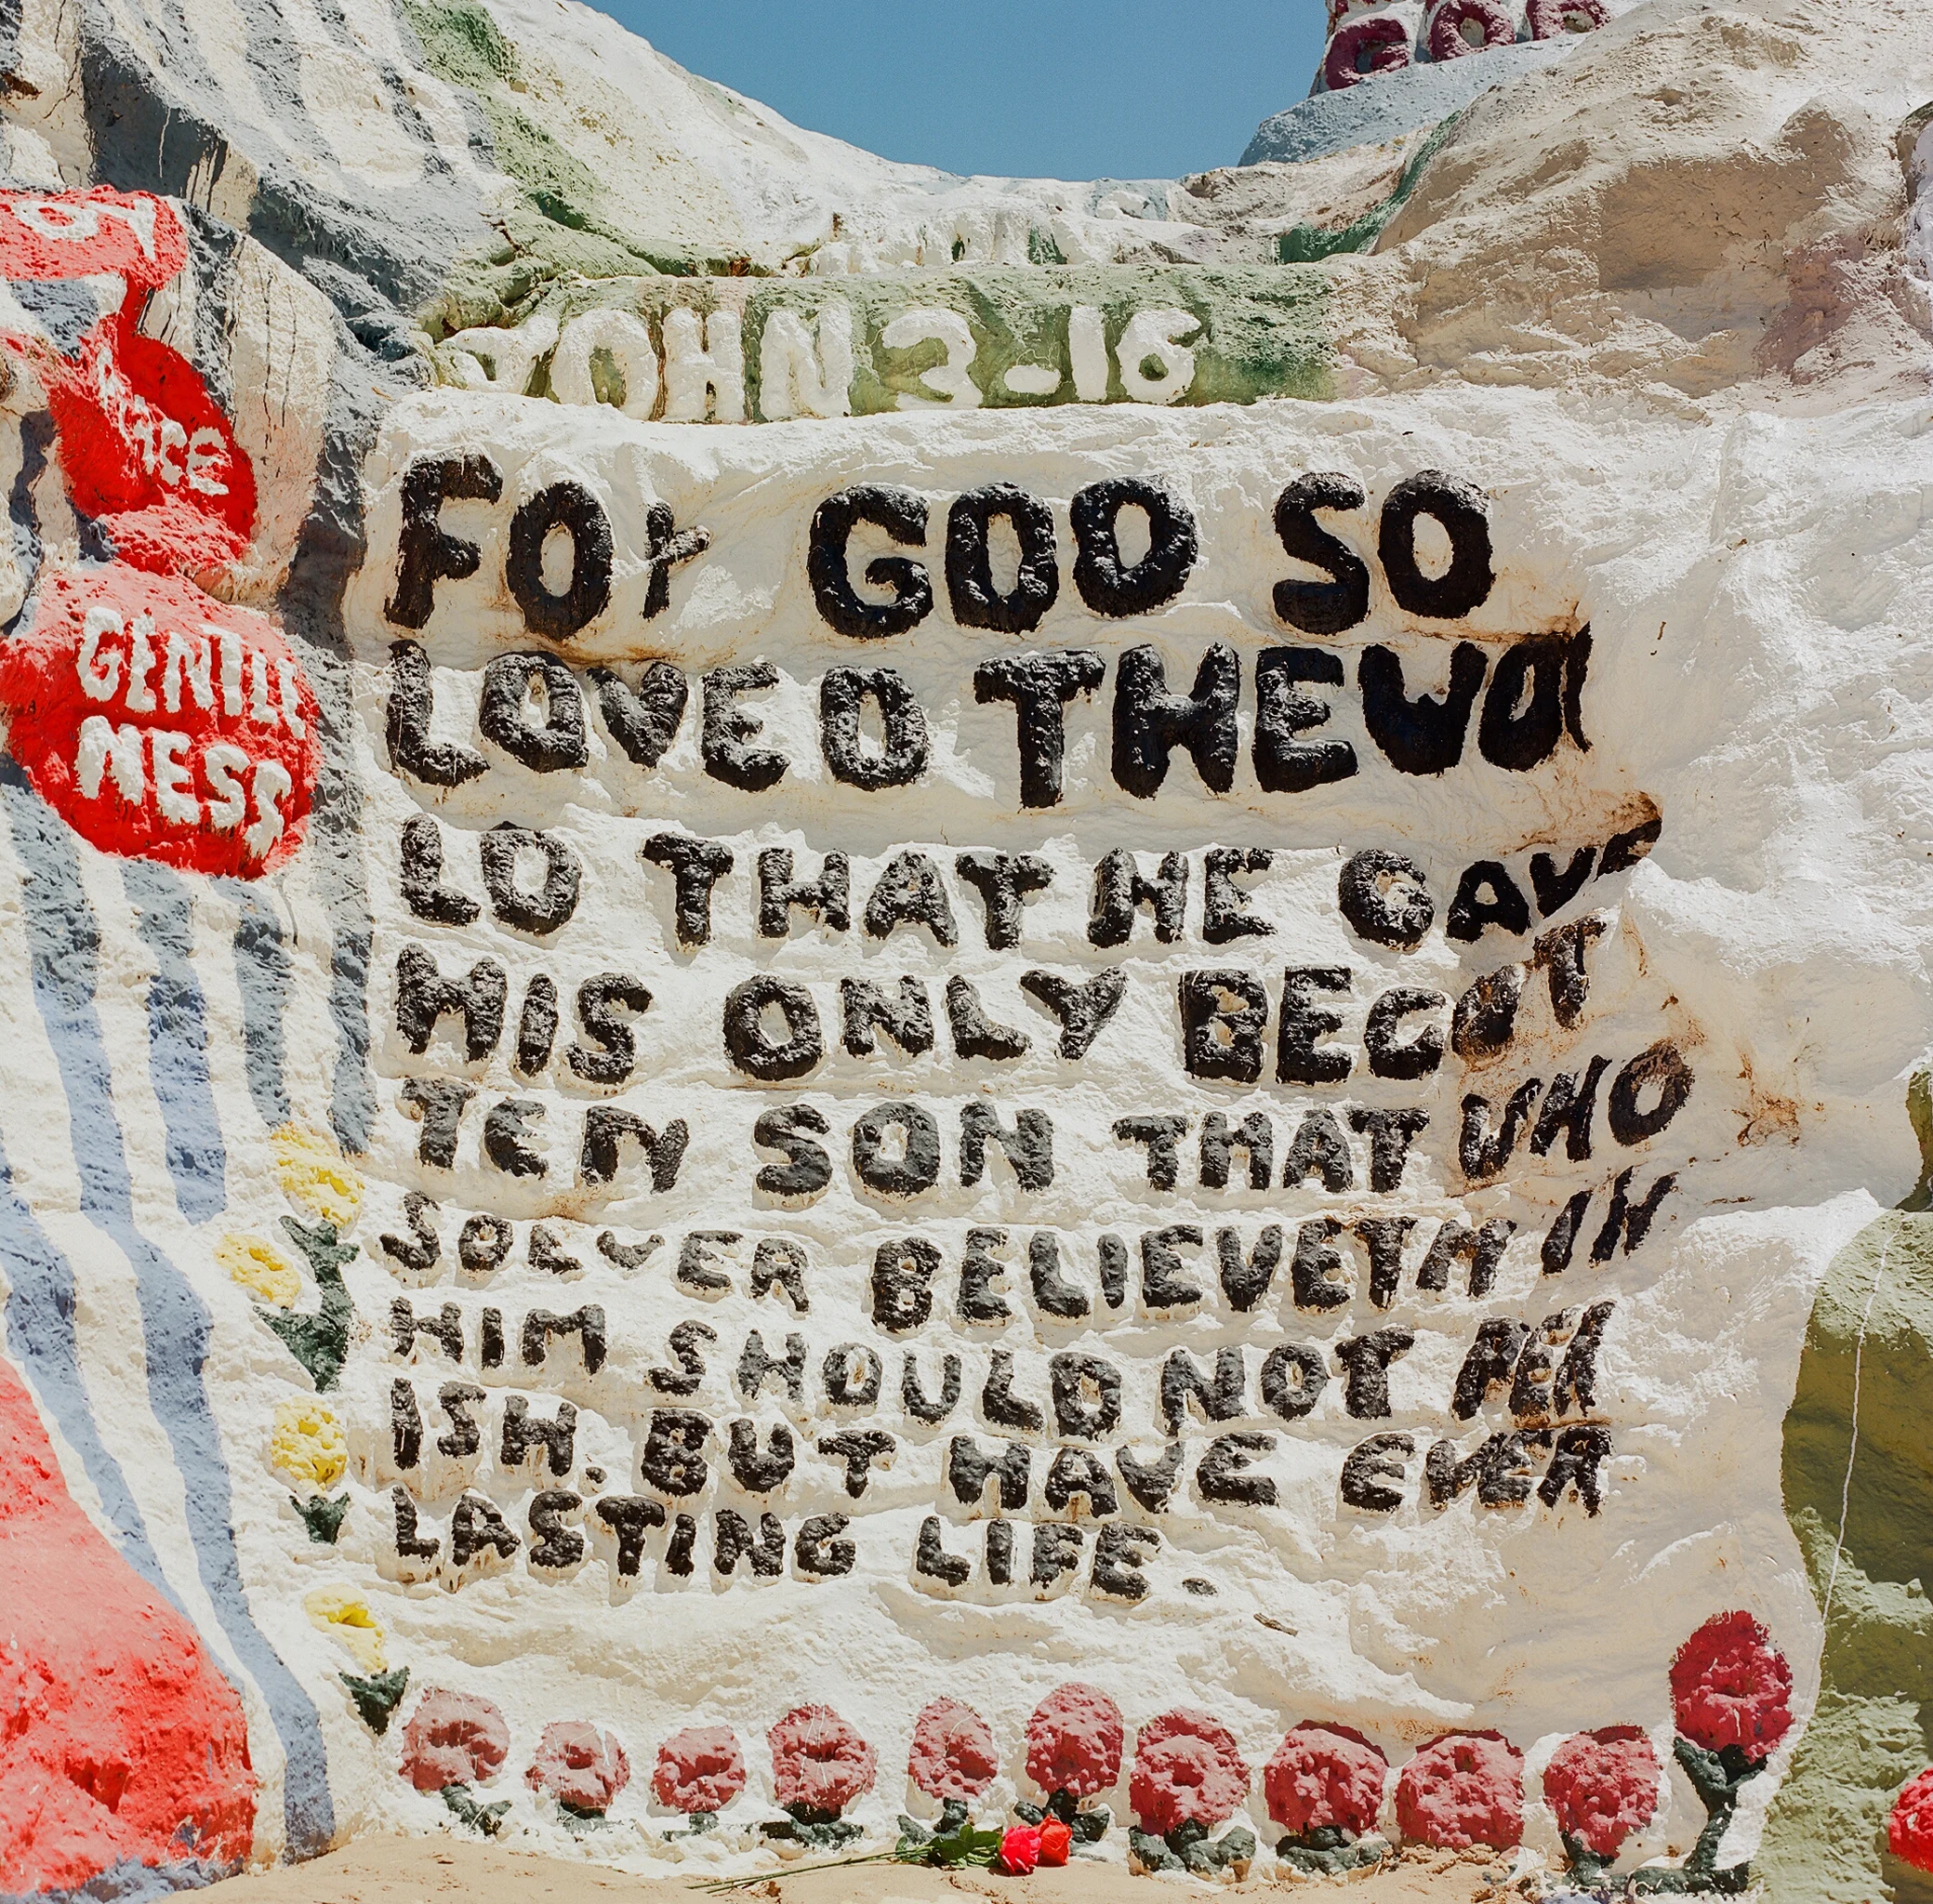 GOD
JOY
JOHN 3-16
FOr GOD SO
LOVED THEWOr
LD THAT HE GAVE
HIS ONLY BEGOT
TEN SON THAT WHO
SOEVER BELIEVETH IN
HIM SHOULD NOT PER
ISH. BUT HAVE EVER
LASTING LIFE.
GENTLE
NESS